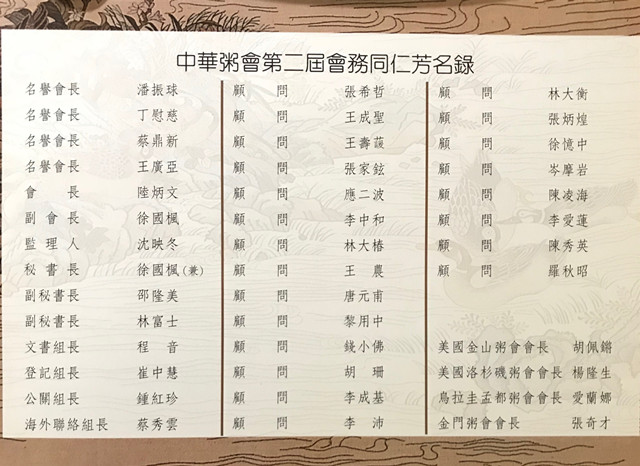 中華粥會第二屆會務同仁芳名錄
名譽會長 潘振球
名譽會長 丁慰慈
名譽會長 蔡鼎新
名譽會長 王廣亞
會長 陸炳文
副會長 徐國楓
監理人 沈映冬
秘書長 徐國楓(兼)
副秘書長 邵隆美
副秘書長 林富士
文書組長 程音
登記組長 崔中慧
公關組長 鍾紅珍
海外聯絡組長 蔡秀雲
顧問 張希哲
顧問 王成聖
顧問 王壽蘐
顧問 張家鉉
顧問 應二波
顧問 李中和
顧問 林大椿
顧問 王農
顧問 唐元甫
顧問 黎用中
顧問 錢小佛
顧問 胡珊
顧問 李成基
顧問 李沛
顧問 林大衡
顧問 張炳煌
顧問 徐憶中
顧問 岑摩岩
顧問 陳凌海
顧問 李愛蓮
顧問 陳秀英
顧問 羅秋昭
美國金山粥會會長 胡佩鏘
美國洛杉磯粥會會長 楊隆生
烏拉圭孟都粥會會長 愛蘭娜
金門粥會會長 張奇才